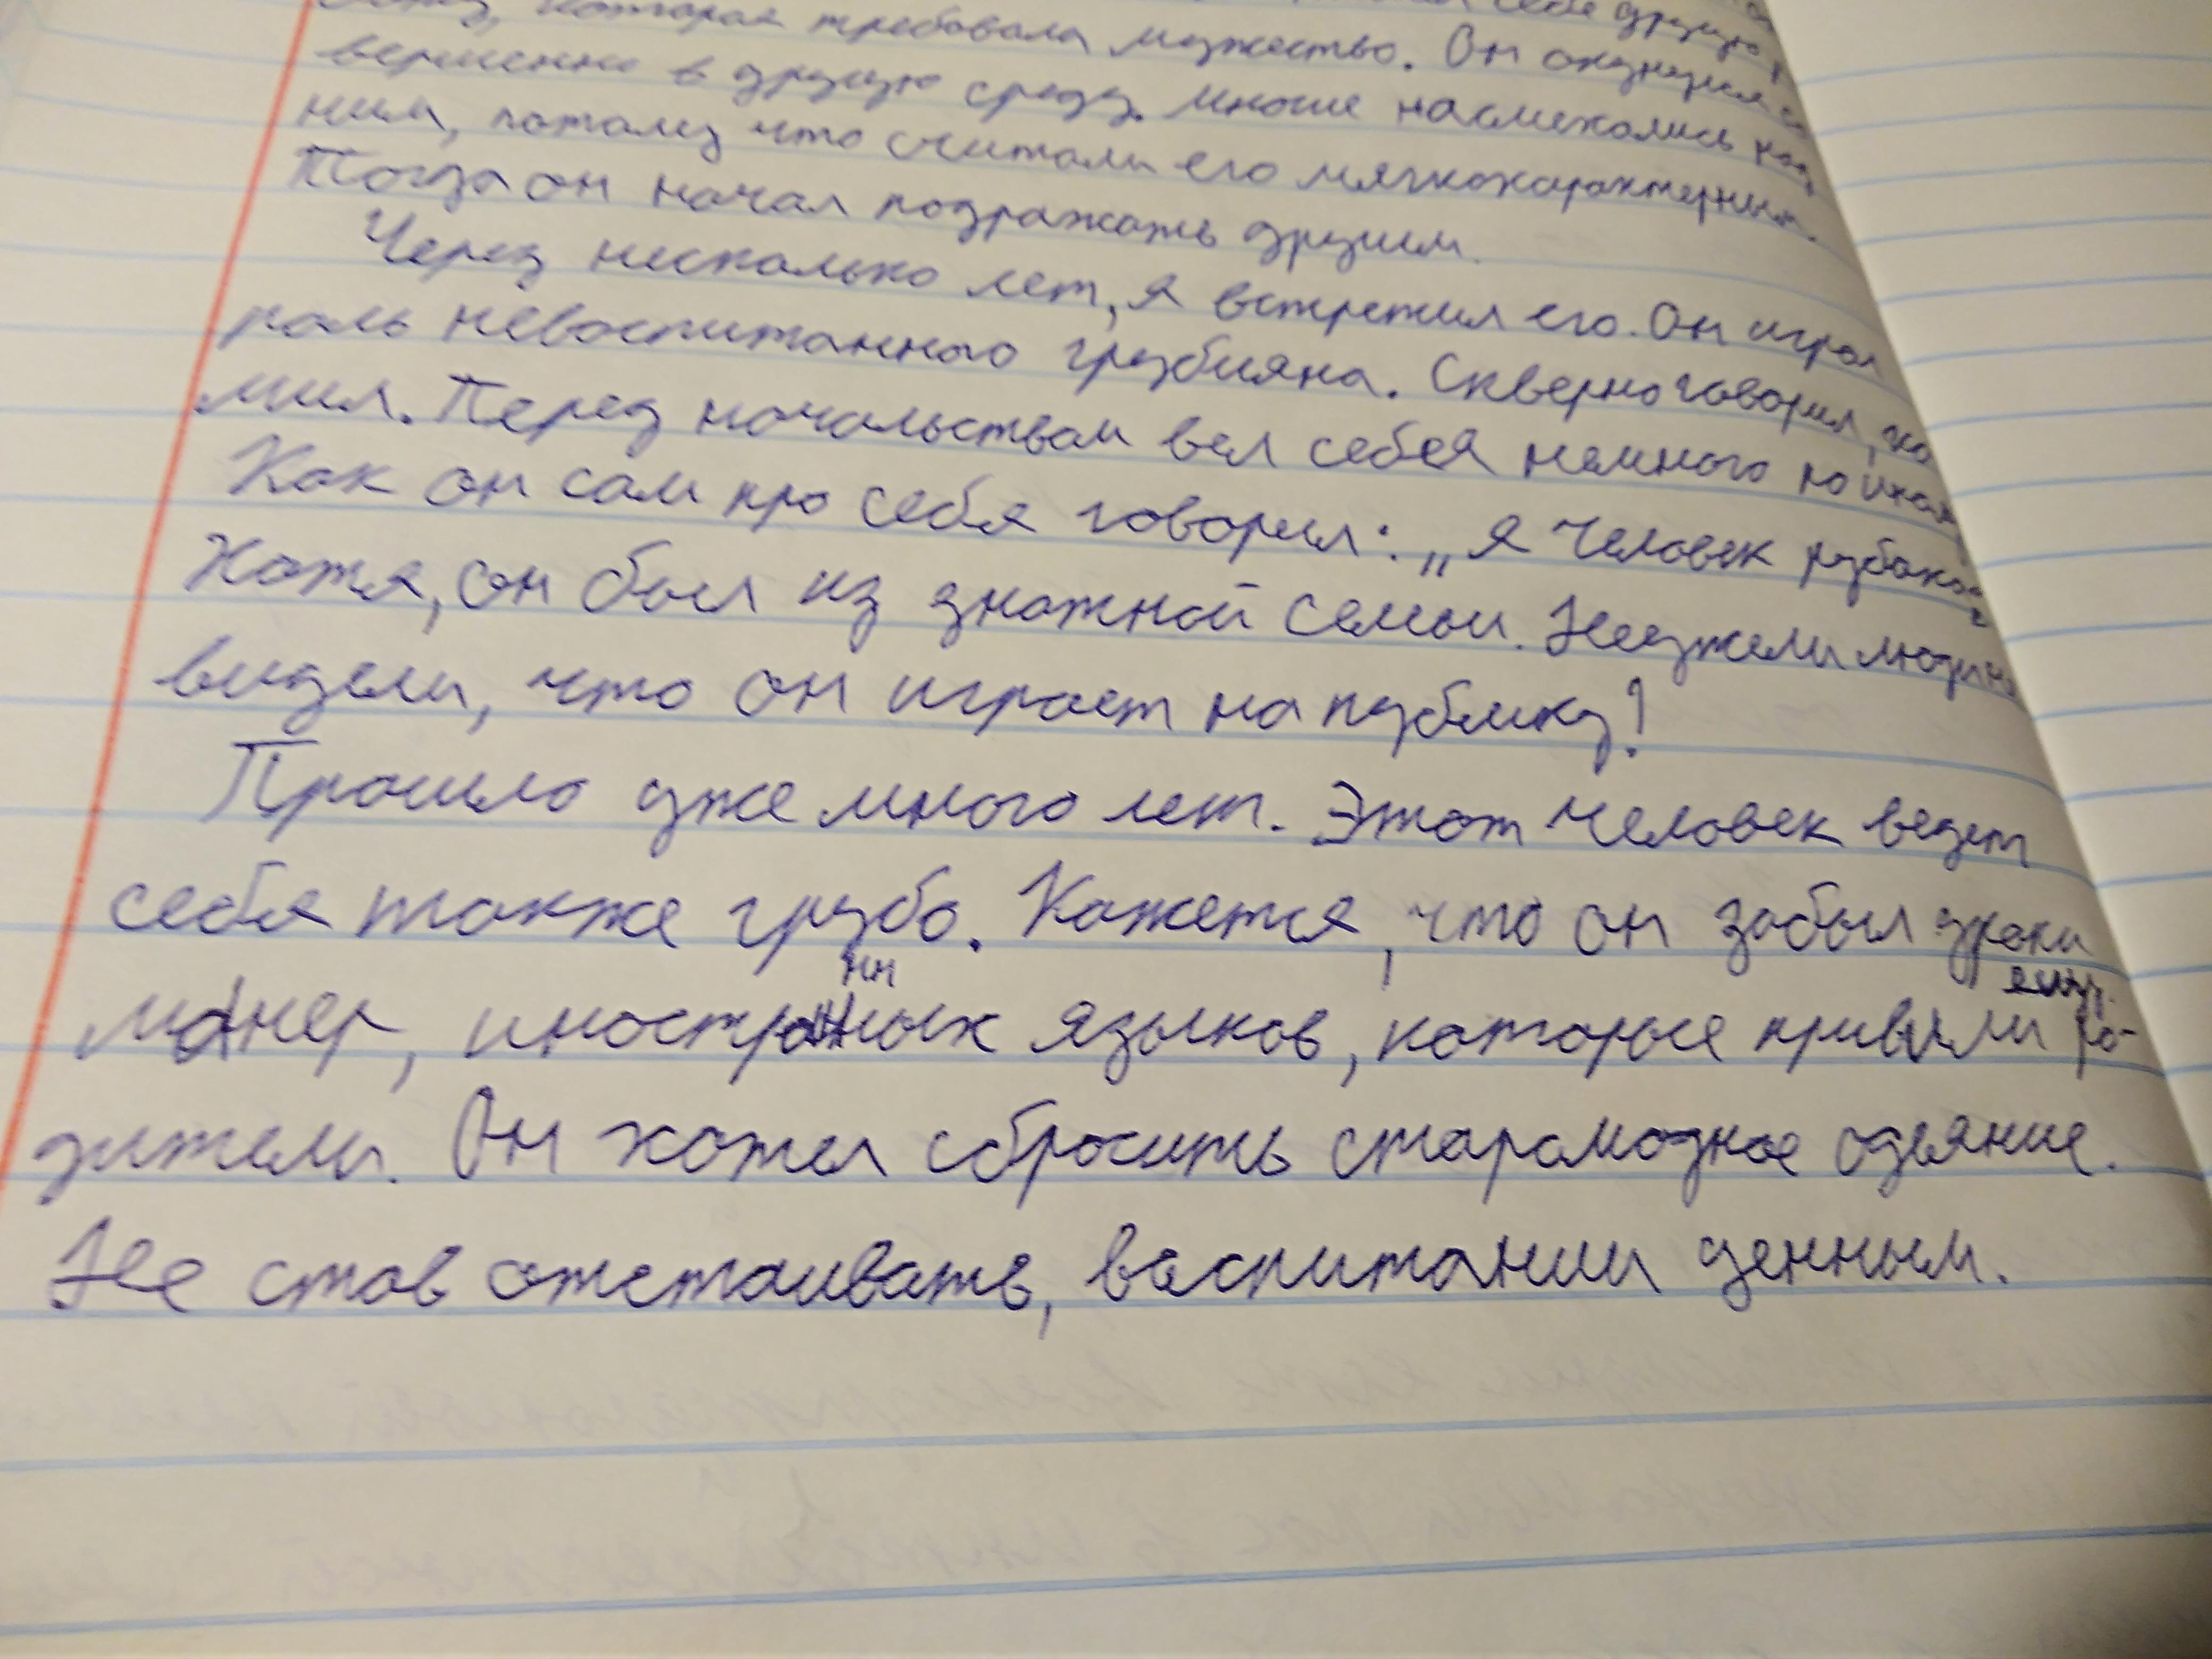 которая требовала мужество. Он окунулся со
вершенно в другую среду. Многие насмехались над
ним, потому что считали его мягкохарактерным.
Тогда он начал подражать другим.
Через несколько лет, я встретил его. Он играл
роль невоспитанного грубияна. Скверно говорил,
мил. Перед начальством вел себея немного по иному
Как он сам про себя говорил: „я человек рубаком
Хотя, он был из знатной семьи. Неужели люди не
видели, что он играет на публику!
Прошло уже много лет. Этот человек ведет
себя также грубо. Кажется, что он забыл уроки
манер, иностранных языков, которые привили ему ро-
дители. Он хотел сбросить старомодное одеяние.
Не став отстаивать, воспитании ценным.